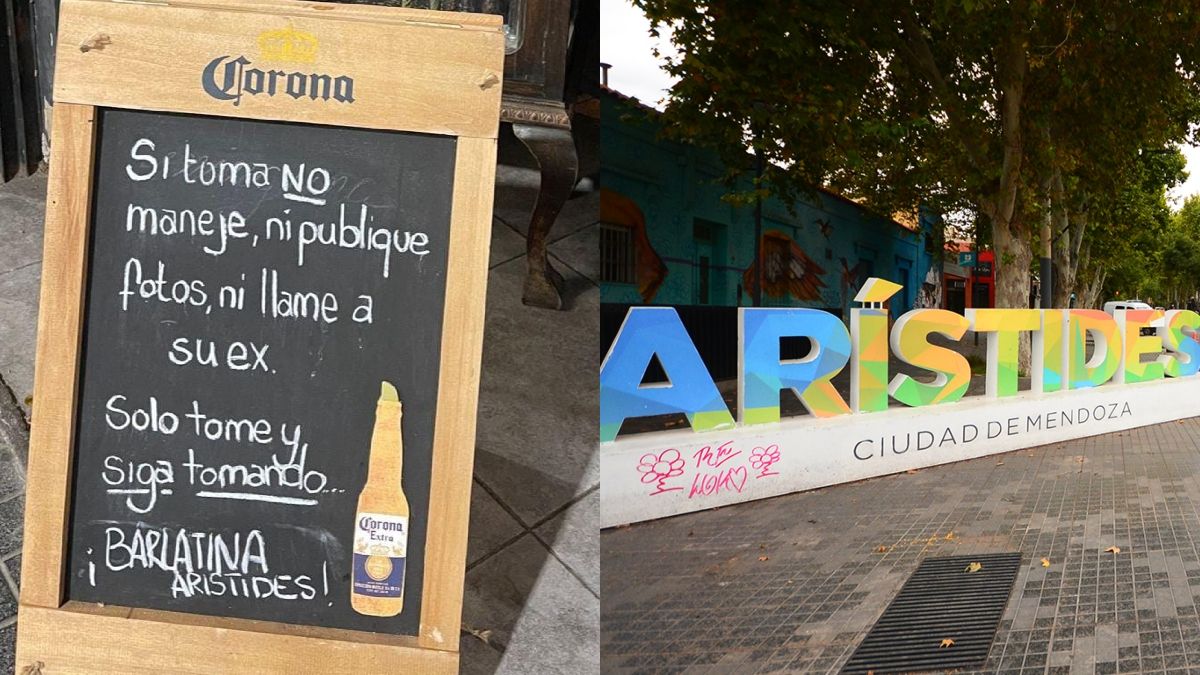 Corona
Si toma NO
maneje, ni publique
fotos, ni llame a
su ex.
Solo tome y
siga tomando...
¡BARLATINA
ARISTIDES!
Corona
Extra
ARÍSTIDES
CIUDAD DE MENDOZA